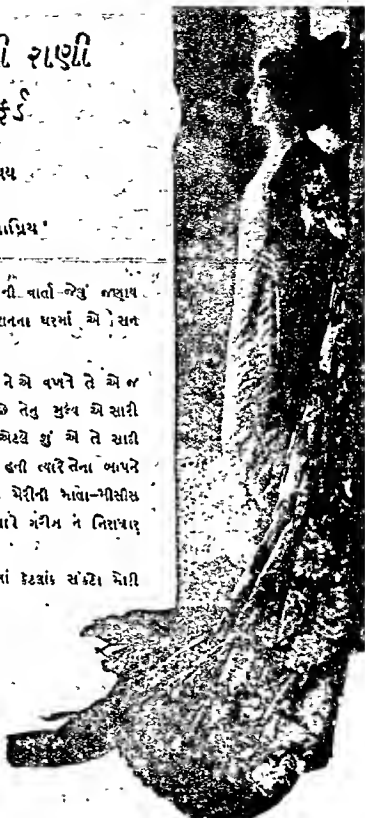 ની રાણી
ફર્ડ
ય
પ્રિય'
ની વાર્તા જેવું જણાય
ના ઘરમાં એ સન
ને એ વખતે તે એ જ
છે તેનું મુલ્ય એ સારી
એટલે શું એ તે સારી
હતી ત્યારે તેના બાપને
મેરીની માતા-મીસીસ
ગરીબ ને નિરાધાર
કેટલાંક સંકટો મેરી